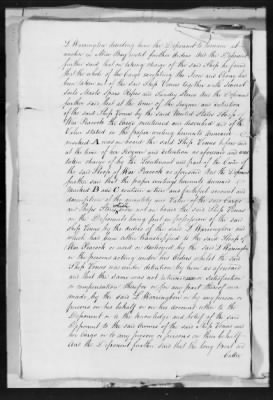 L Warrington directing him the Deponent to remain at
anchor in Mew Bay until further orders And the Deponent
further said that on taking charge of the said Ship he found
that the whole of the Cargo excepting the Iron and Ebony had
been taken out of the said Ship Venus together with several
Sails Masts Spars Ropes and Sundry Stores And the Deponent
further said that at the time of the Seizure and detention
of the said Ship Venus by the said United States Ship of
War Peacock the Cargo mentioned and described and of the
Value stated in the paper writing hereunto annexed
marked A was on board the said Ship Venus before and
at the time of her Seizure and detention as aforesaid and was
taken charge of by the Lieutenant and part of the Crew of
the said Sloop of War Peacock as aforesaid And the Deponent
further said that the paper writing hereunto annexed
Marked B and C contain a true and faithful account and
description of the quantity and Value of the said Cargo
and Ships Stores not on board the said Ship Venus
on the Deponents being put in possession of the said
Ship Venus by the orders of the said L Warrington and
which had been either transshipped to the said Sloop of
War Peacock or used or destroyed by the said L Warrington
or the persons acting under his Orders whilst the said
Ship Venus was under detention by him as aforesaid
and that the same and no Satisfaction
or compensation therefor or for any part thereof was
made by the said L Warrington or by any person or
persons on his behalf or on his account either to the
Deponent or to the knowledge and belief of the said
Deponent to the said Owners of the said Ship Venus and
her Cargo or to any person or persons on their behalf
And the Deponent further said that the long Boat and
Cutter